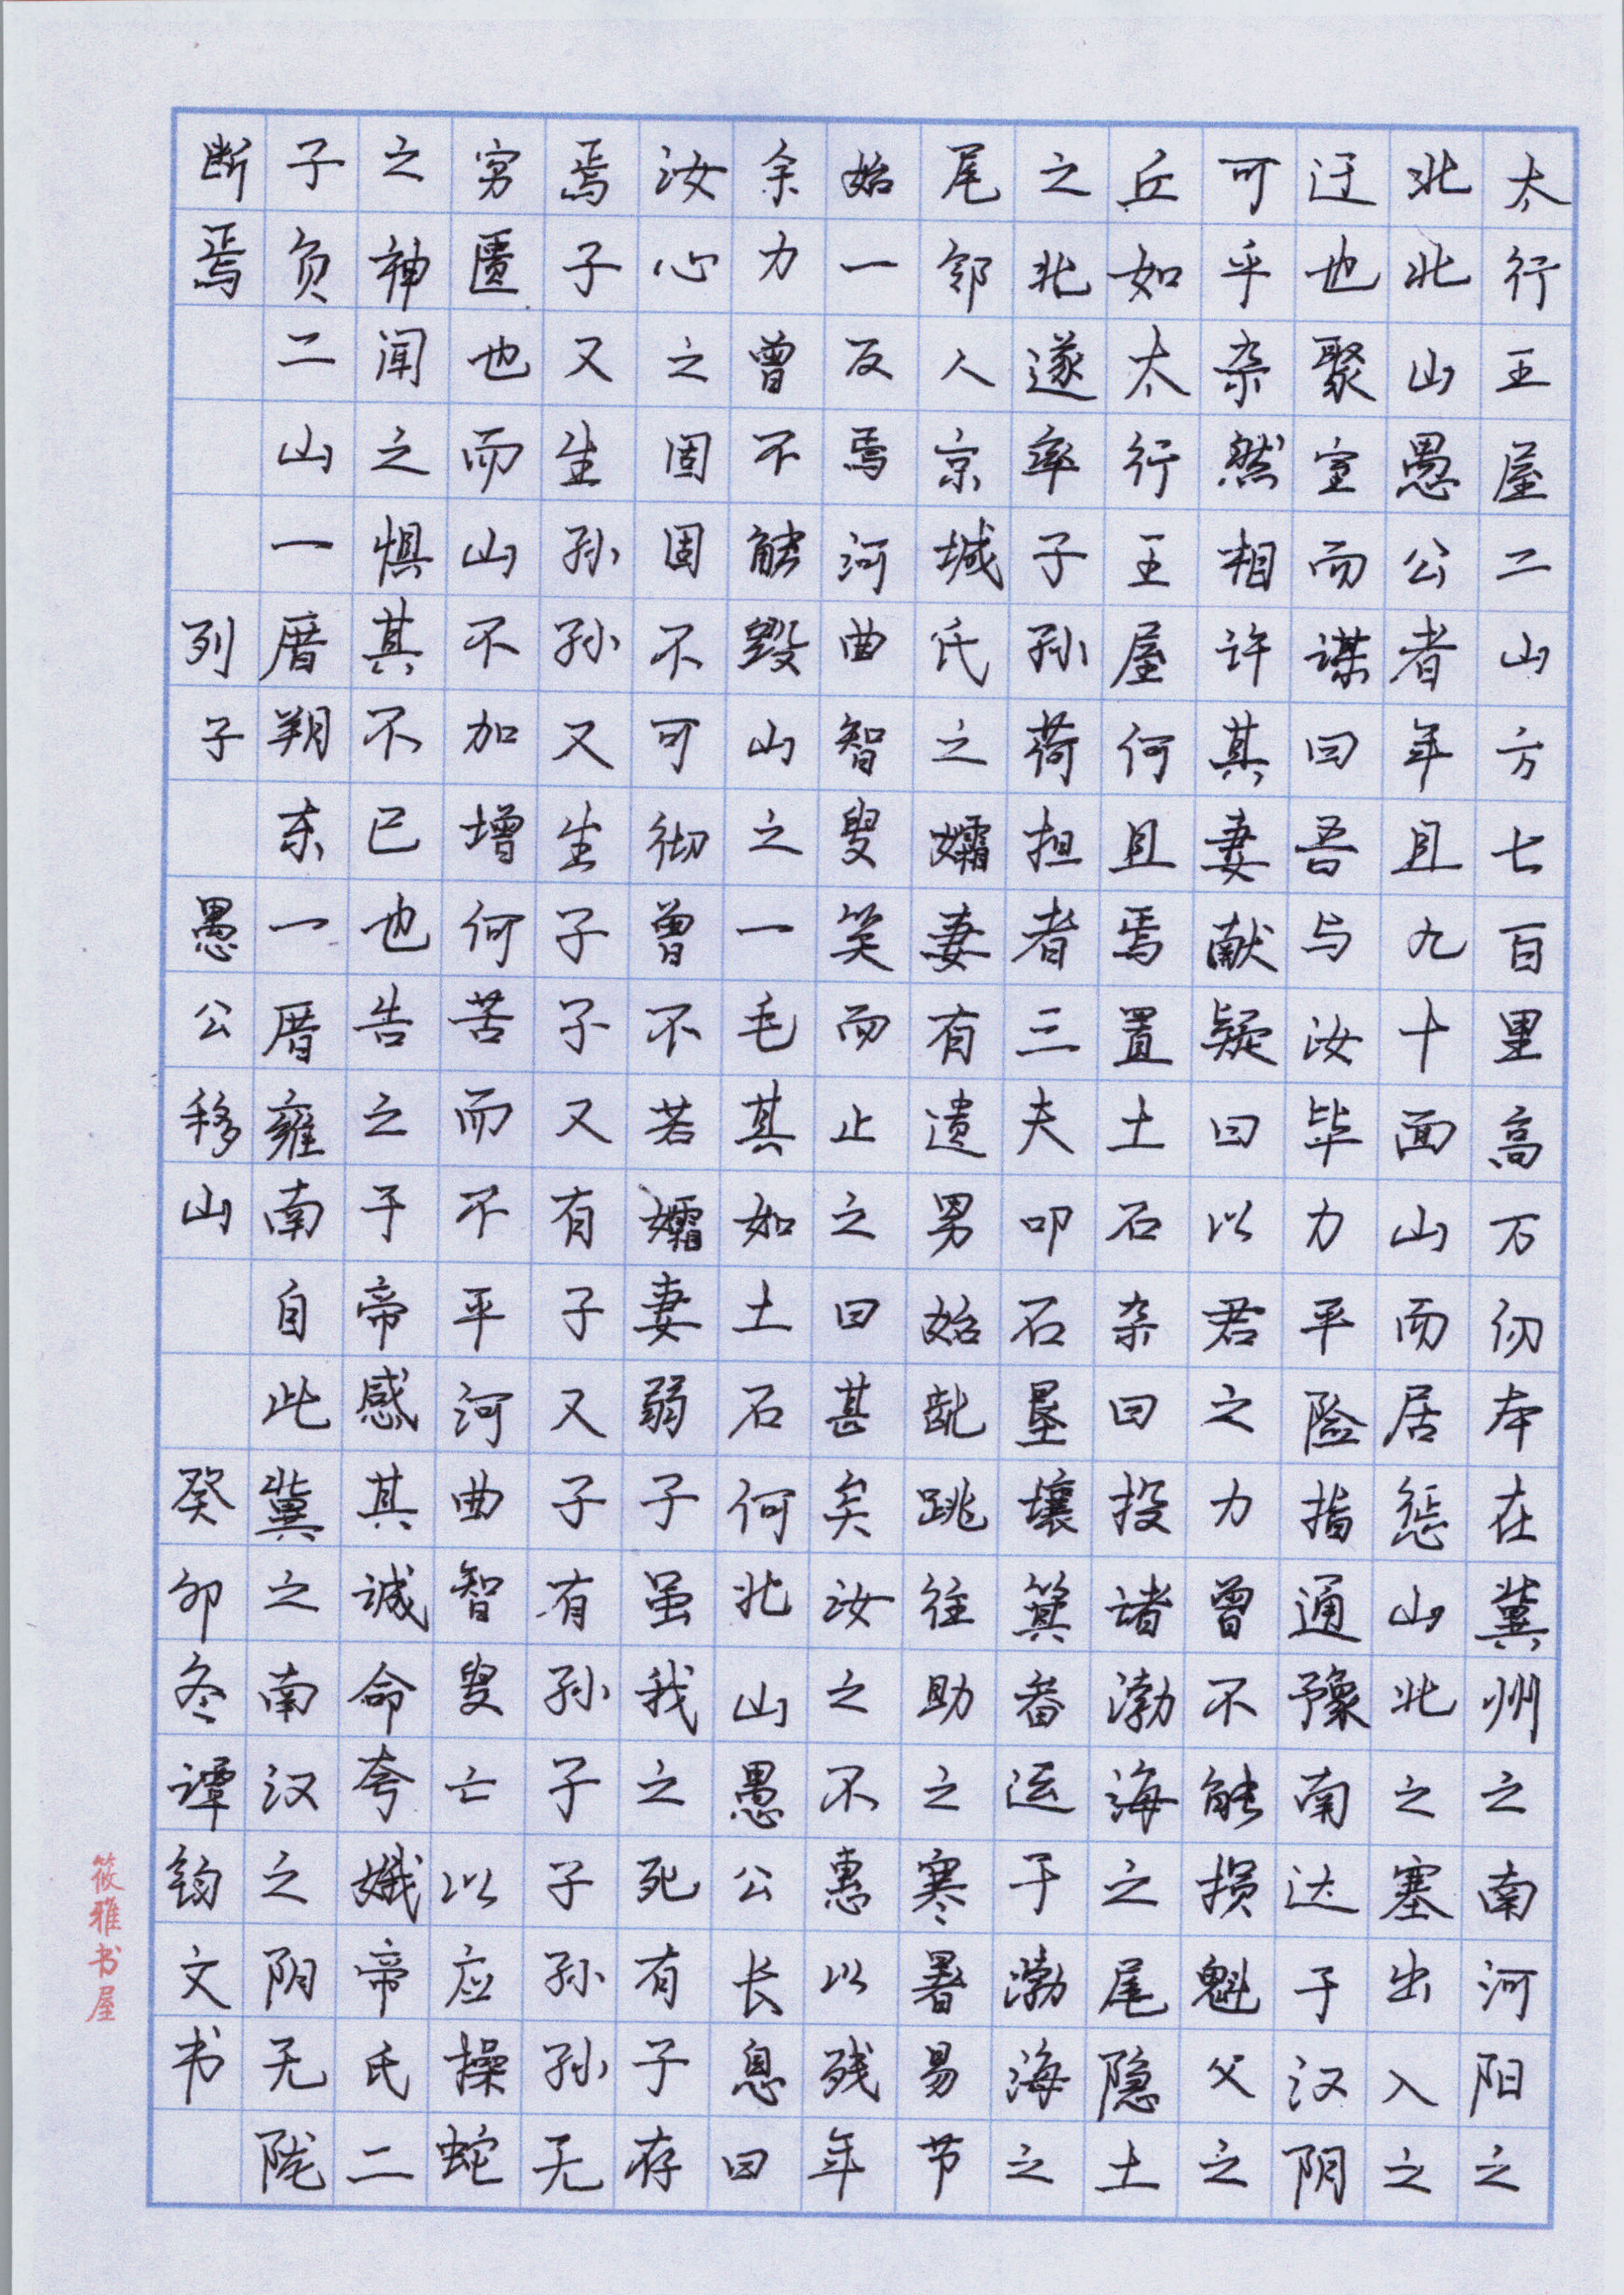 太行王屋二山方七百里高万仞本在冀州之南河阳之
北北山愚公者年且九十面山而居惩山北之塞出入之
迂也聚室而谋曰吾与汝毕力平险指通豫南达于汉阴
可乎杂然相许其妻献疑曰以君之力曾不能损魁父之
丘如太行王屋何且焉置土石杂曰投诸渤海之尾隐土
之北遂率子孙荷担者三夫叩石垦壤箕畚运于渤海之
尾邻人京城氏之孀妻有遗男始龀跳往助之寒暑易节
始一反焉河曲智叟笑而止之曰甚矣汝之不惠以残年
余力曾不能毁山之一毛其如土石何北山愚公长息曰
汝心之固固不可彻曾不若孀妻弱子虽我之死有子存
焉子又生孙孙又生子子又有子又子有孙子子孙孙无
穷匮也而山不加增何苦而不平河曲智叟亡以应操蛇
之神闻之惧其不已也告之于帝感其诚命夸娥帝氏二
子负二山一厝朔东一厝雍南自此冀之南汉之阴无陇
断焉 列子 愚公移山 癸卯冬谭钧文书
筱雅书屋